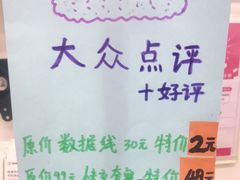 大众点评
+好评
原价 数据线 30元 特价 2元
原价99元 特价 48元